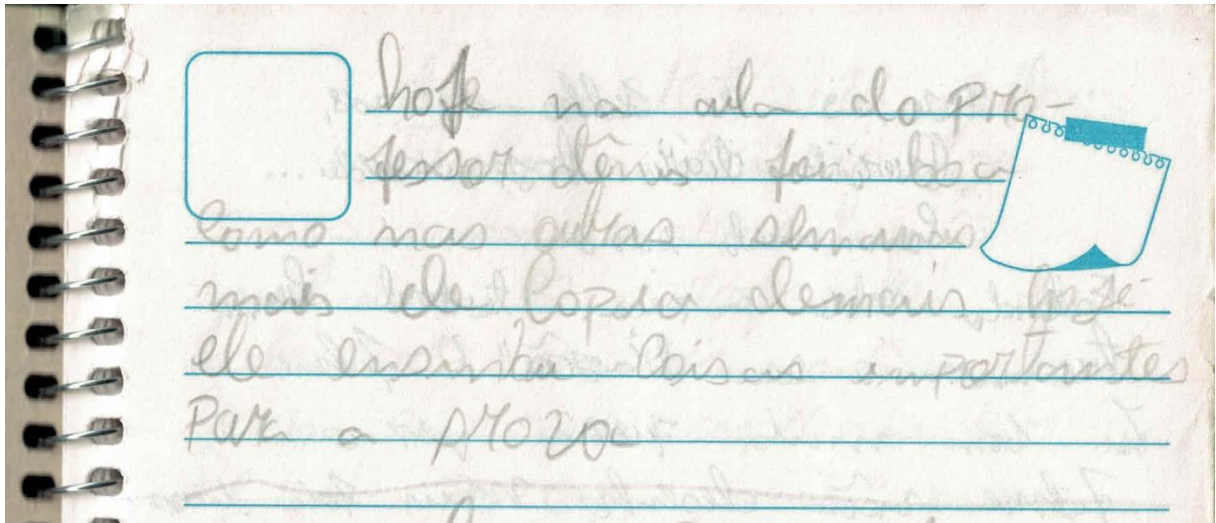 hoje na aula do pro-
fessor dênis foi boa
como nas outras semanas
mais ele copia demais,
ele ensinha coisas importantes
Para a prova